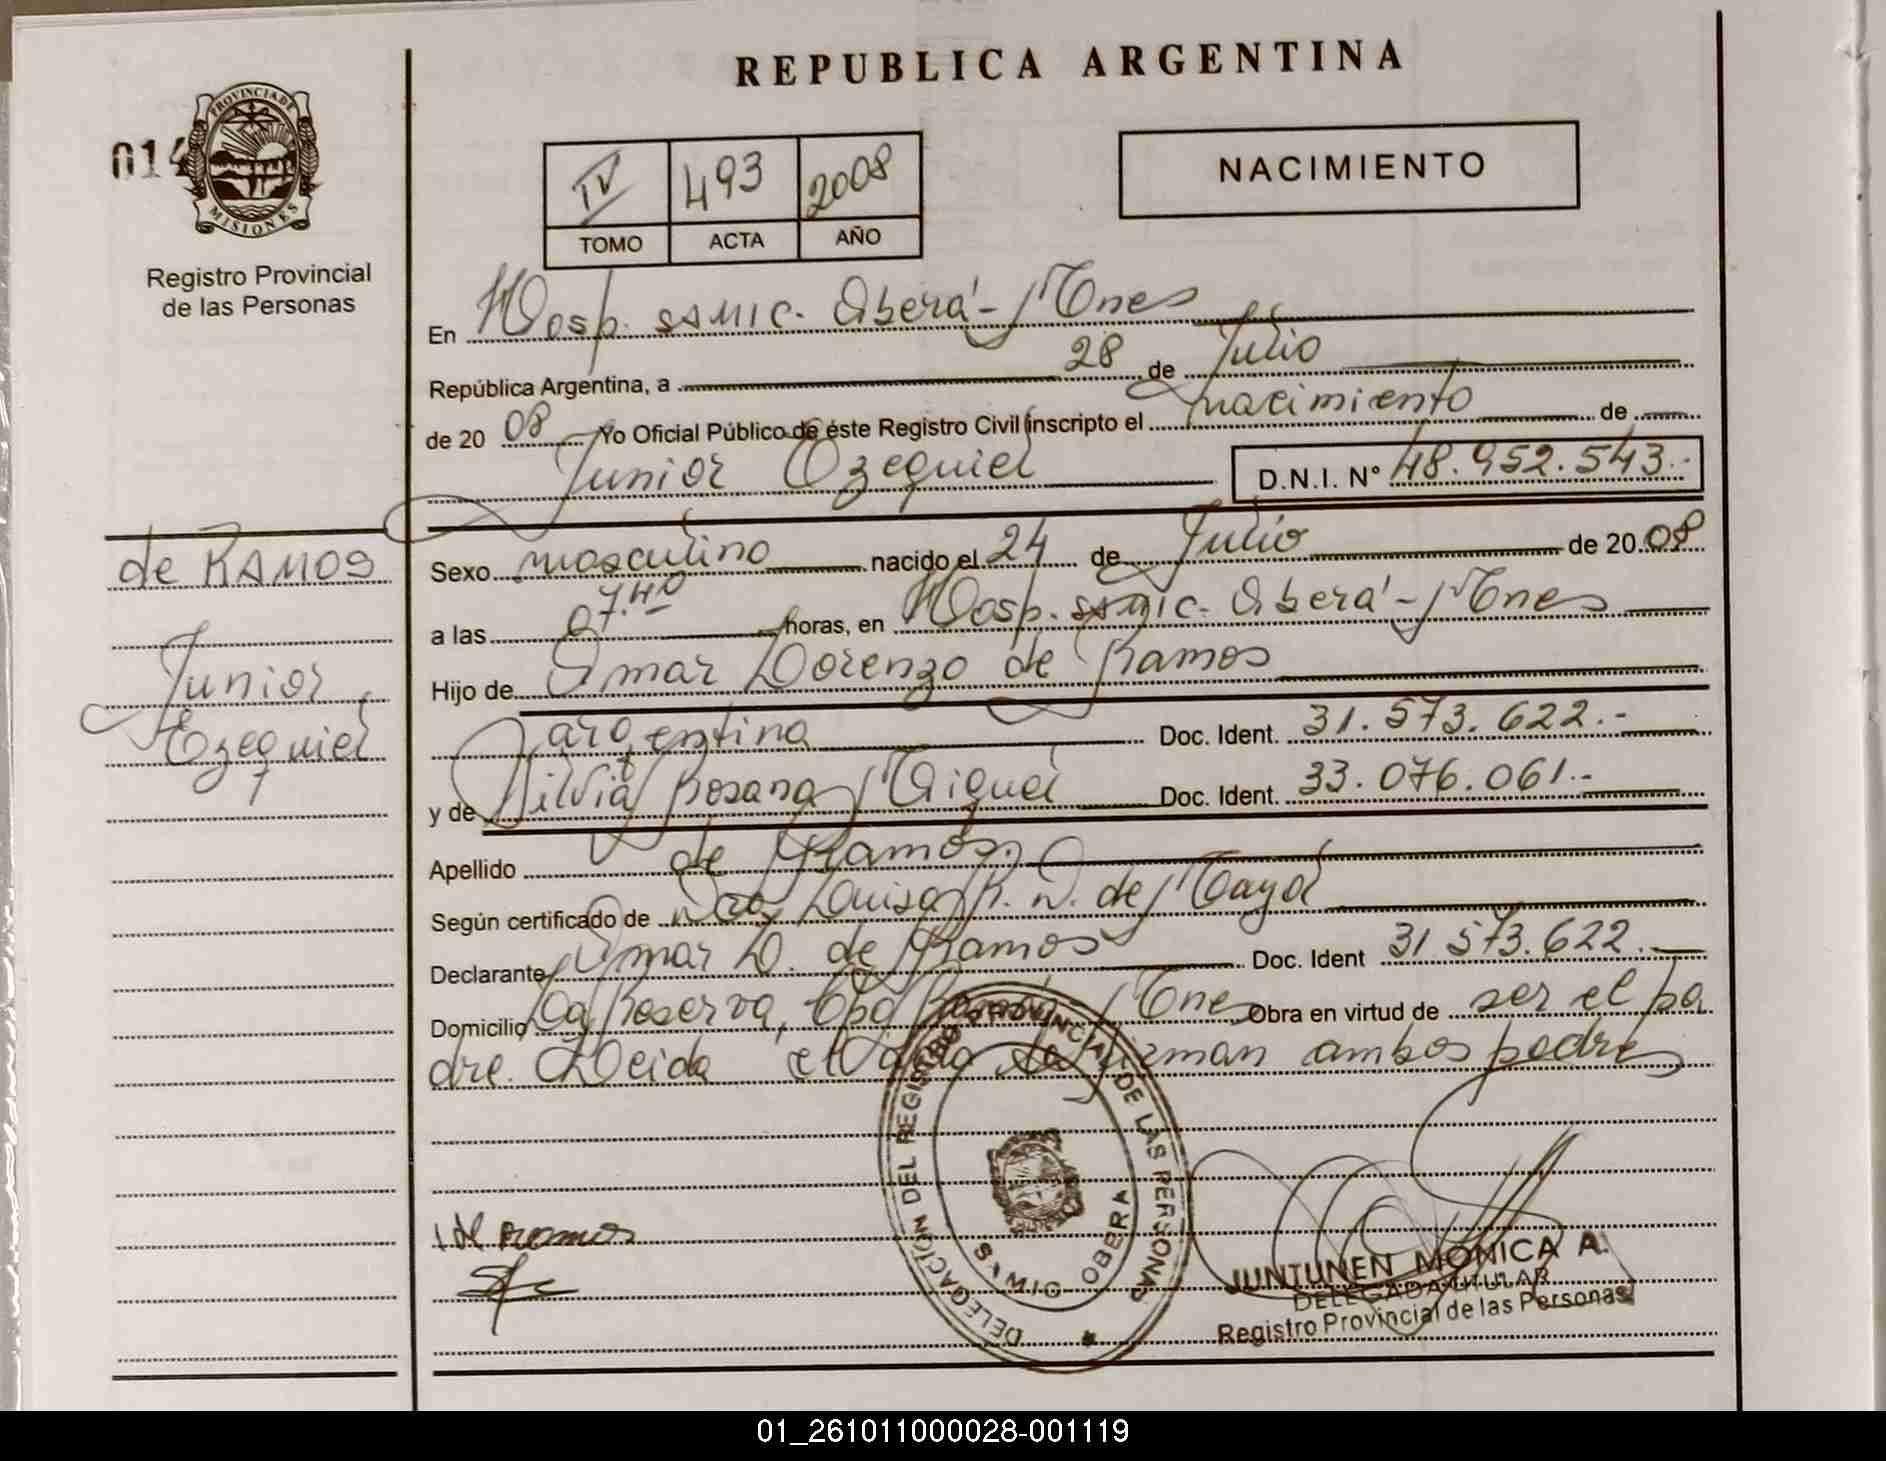 REPUBLICA ARGENTINA
014
PROVINCIA DE
MISIONES
Registro Provincial
de las Personas
IV 493 2008
TOMO ACTA AÑO
NACIMIENTO
En Hosp. SAMIC. Oberá - Mnes
República Argentina, a 28 de Julio
de 20 08 Yo Oficial Público de éste Registro Civil inscripto el nacimiento de
Junior Ezequiel D.N.I. Nº 48.952.543.-
de RAMOS
Junior
Ezequiel
Sexo masculino nacido el 24 de Julio de 20 08
a las 07.40 horas, en Hosp. SAMIC. Oberá - Mnes
Hijo de Omar Lorenzo de Ramos
argentina Doc. Ident. 31.573.622.-
y de Silvia Rosana Miguel Doc. Ident. 33.076.061.-
Apellido de Ramos.
Según certificado de Dra Luisa R. N. de
Declarante Omar L. de Ramos Doc. Ident 31.573.622.-
Domicilio Mnes Obra en virtud de ser el pa
dre. Leida el acta la firman ambos padres
DELEGACIÓN DEL REGISTRO PROVINCIAL DE LAS PERSONAS
SAMIC OBERA
de ramos
JUNTUNEN MONICA A.
DELEGADA TITULAR
Registro Provincial de las Personas
01_261011000028-001119